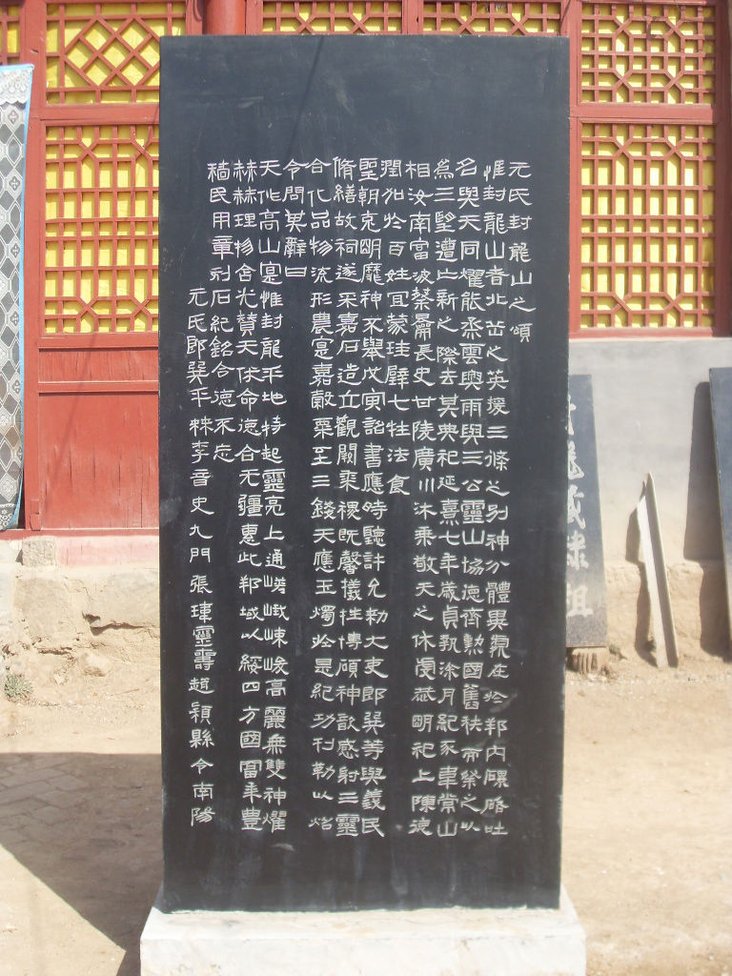 元氏封龍山之頌
惟封龍山者北岳之英援三條之別神分體異處在於邦內磥硌吐
名與天同燿能烝雲興雨與三公靈山協德齊勳國舊秩而祭之以
為三望遭亡新之際去其典祀延熹七年歲貞執涂月紀豕韋常山
相汝南富波蔡長史甘陵廣川沐乘敬天之休虔恭明祀上陳德
潤加於百姓宜蒙珪璧七牲法食
聖朝克明靡神不舉戊寅詔書應時聽許允勑大吏郎巽等與義民
脩繕故祠遂采嘉石造立觀闕黍稷既馨犧牲博碩神歆感射三靈
合化品物流形農寔嘉穀粟至三錢天應玉燭於是紀功刊勒以炤
令問其辭曰
天作高山寔惟封龍平地特起靈亮上通嵯峨竦峻高麗無雙神燿
赫赫理物含光贊天休命德合无疆惠此邦域以綏四方國富年豐
穡民用章刻石紀銘令德不忘
元氏郎巽平棘李音史九門張瑋靈壽趙穎縣令南陽